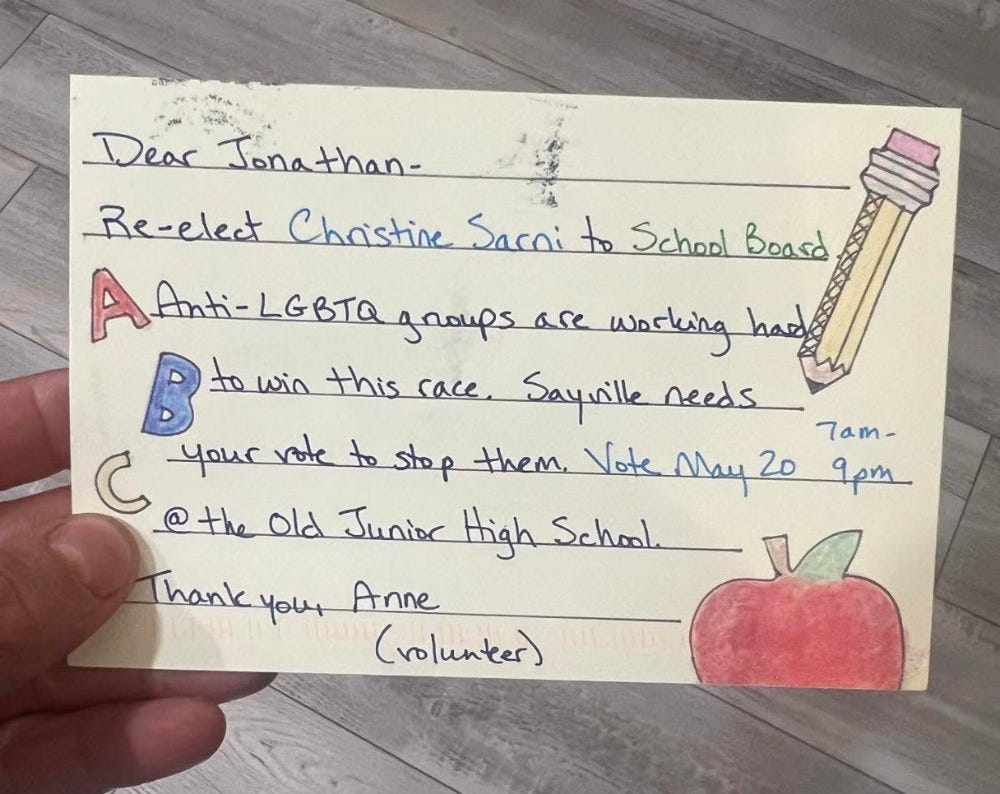 Dear Jonathan-
Re-elect Christine Sarni to School Board
A Anti-LGBTQ groups are working had
B to win this race. Sayville needs
your vote to stop them. Vote May 20 7am-9pm
C @ the Old Junior High School.
Thank you, Anne
(volunteer)